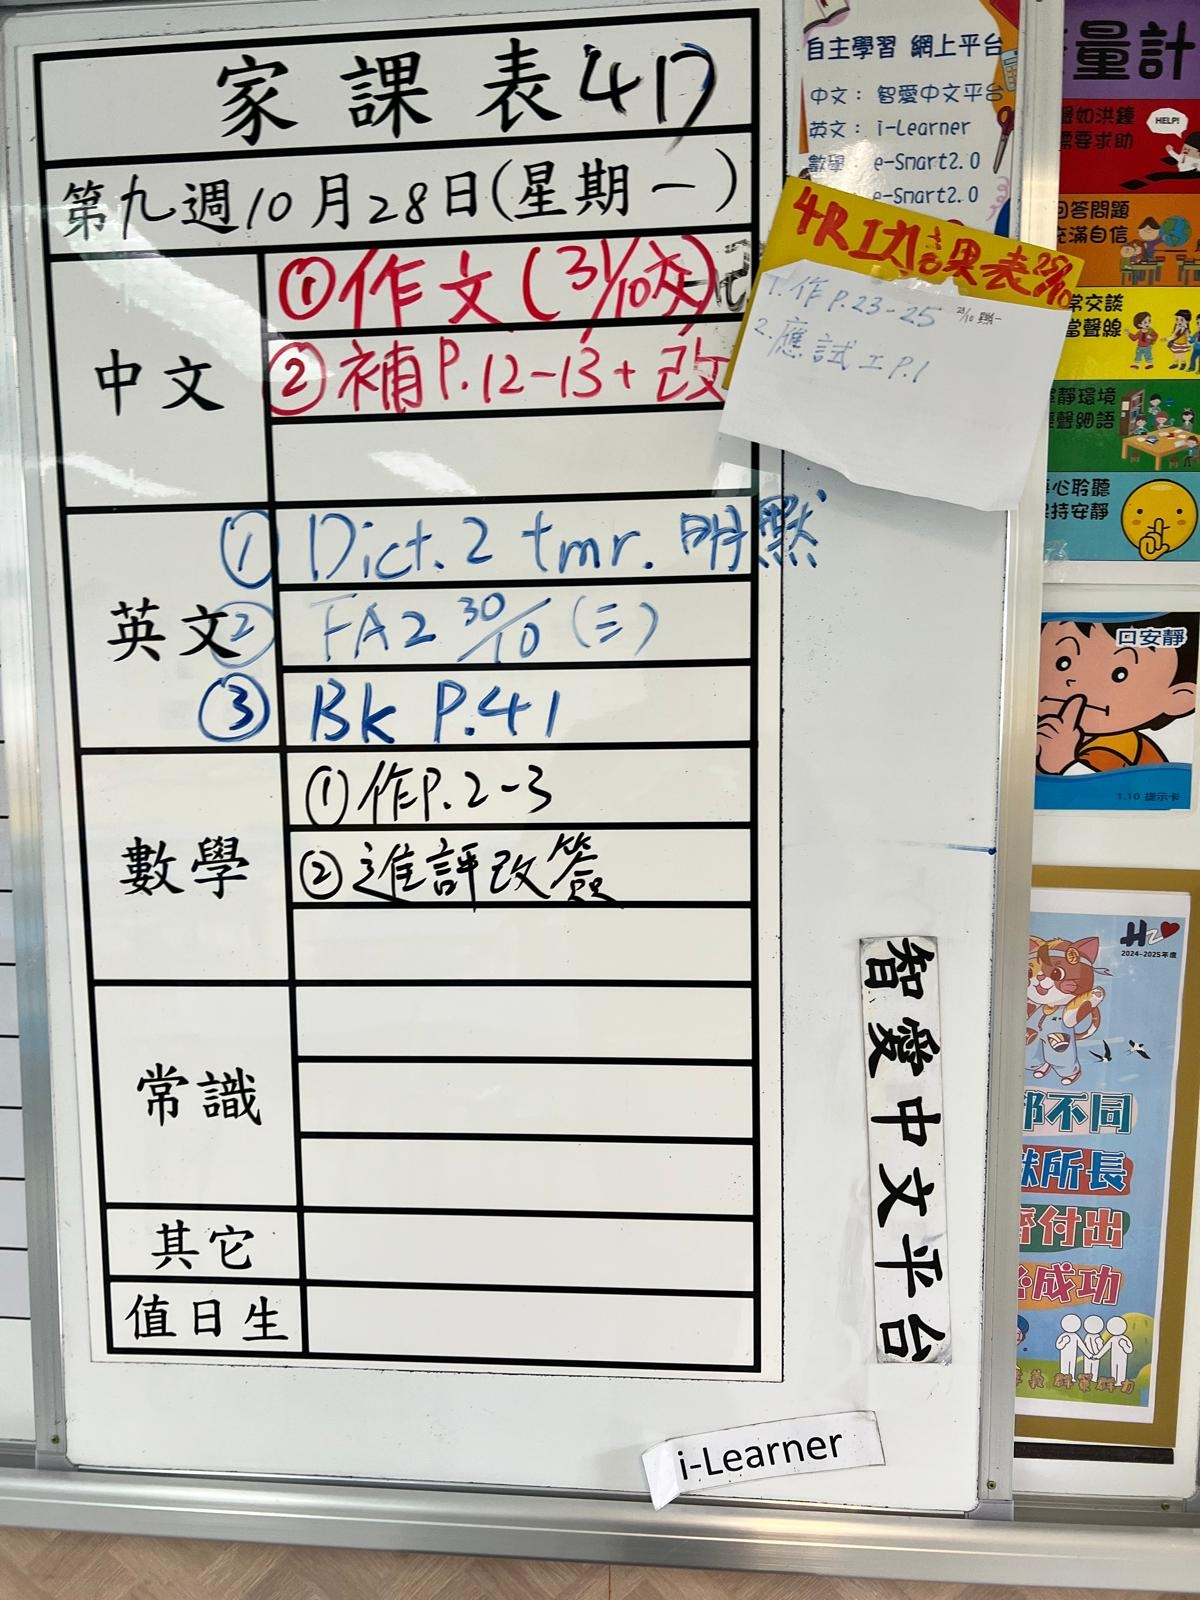 家課表 417
第九週10月28日(星期一)
中文
①作文(31/10交)
②補P.12-13+改
英文
① Dict. 2 tmr. 明默
② FA2 30/10 (三)
③ Bk P.41
數學
①作P.2-3
②進評改簽
常識
其它
值日生
自主學習 網上平台
中文： 智愛中文平台
英文： i-Learner
數學： e-Smart2.0
e-Smart2.0
4R功課表 25/10
1. 作P.23-25
2. 應試工P.1
量計
如洪鐘
HELP!
要求助
回答問題
充滿自信
常交談
當聲線
靜環境
聲細語
心聆聽
持安靜
口安靜
1.10 提示卡
智愛中文平台
i-Learner
2024-2025年度
不同
所長
付出
成功